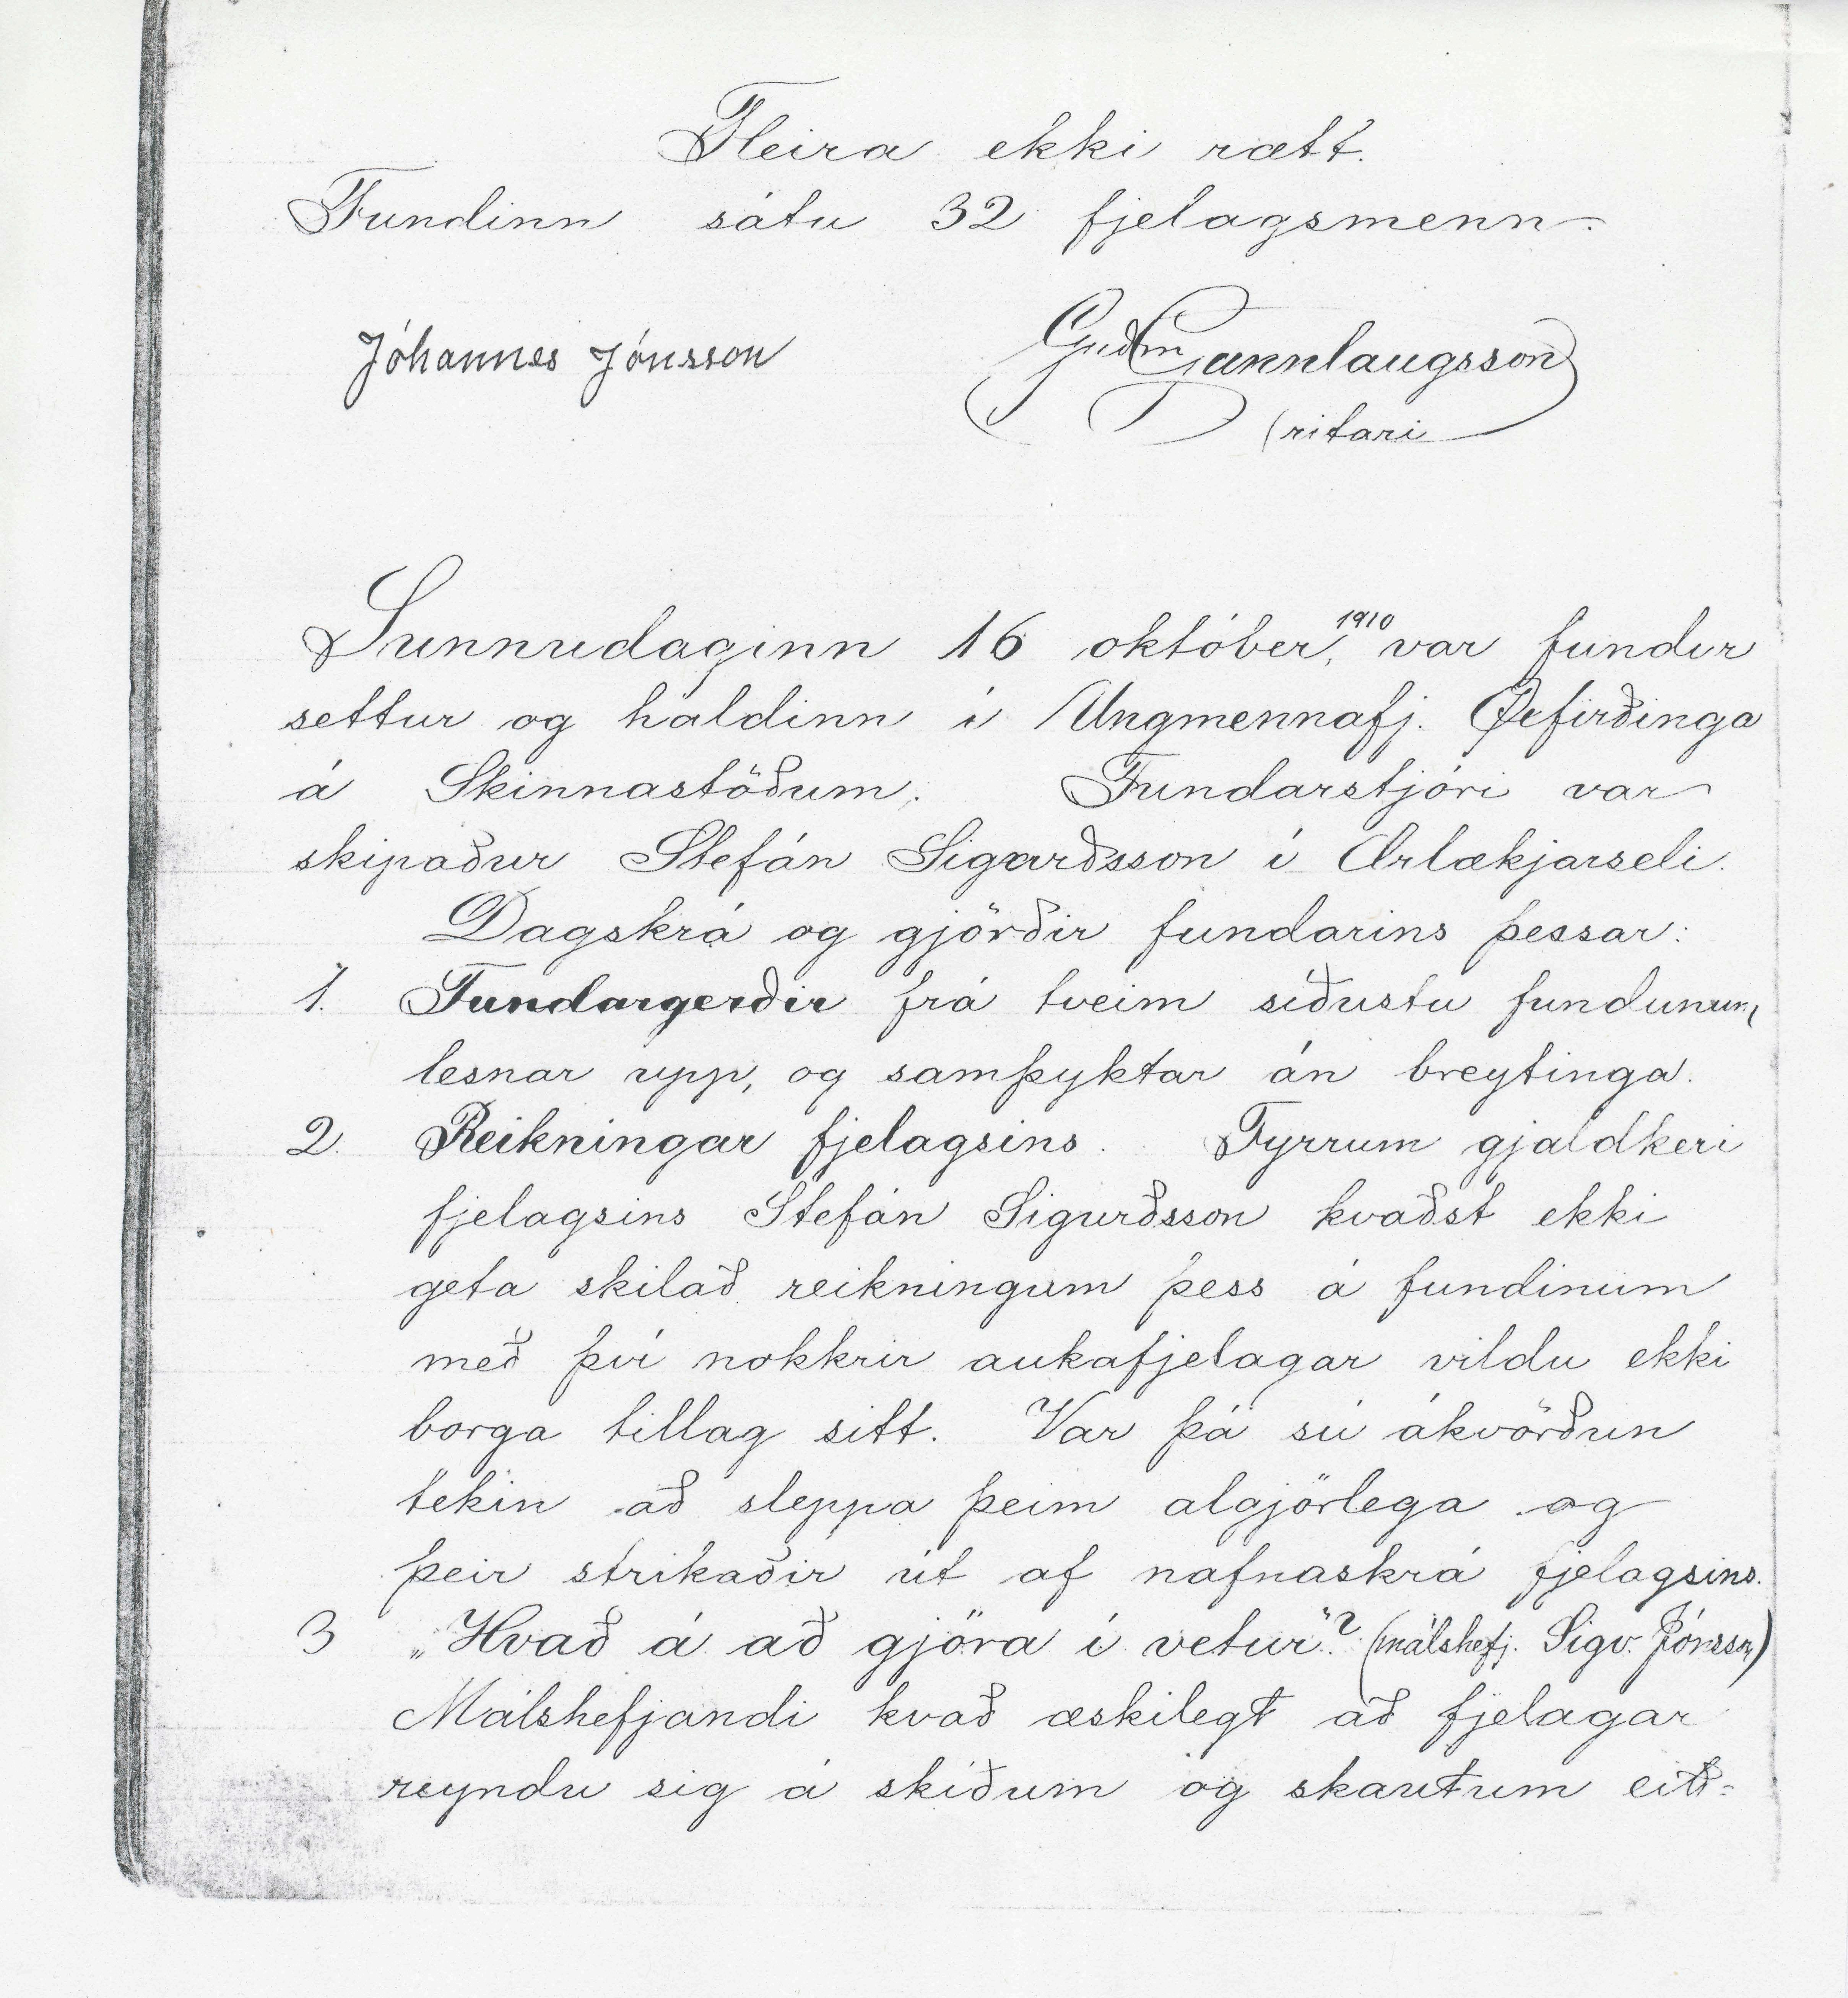 Fleira ekki rætt.
Fundinn sátu 32 fjelagsmenn.
Jóhannes Jónsson
Guðm Gunnlaugsson
(ritari
Sunnudaginn 16 október, 1910 var fundur
settur og haldinn í Ungmennafj. Öxfirðinga
á Skinnastöðum. Fundarstjóri var
skipaður Stefán Sigurðsson í Ærlækjarseli.
Dagskrá og gjörðir fundarins þessar:
1. Fundargerðir frá tveim síðustu fundunum,
lesnar upp, og samþyktar án breytinga.
2. Reikningar fjelagsins. Fyrrum gjaldkeri
fjelagsins Stefán Sigurðsson kvaðst ekki
geta skilað reikningum þess á fundinum
með því nokkrir aukafjelagar vildu ekki
borga tillag sitt. Var þá sú ákvörðun
tekin að sleppa þeim algjörlega og
þeir strikaðir út af nafnaskrá fjelagsins.
3 „Hvað á að gjöra í vetur"? (málshefj. Sigv. Jónsson)
Málshefjandi kvað æskilegt að fjelagar
reyndu sig á skíðum og skautum eitt=